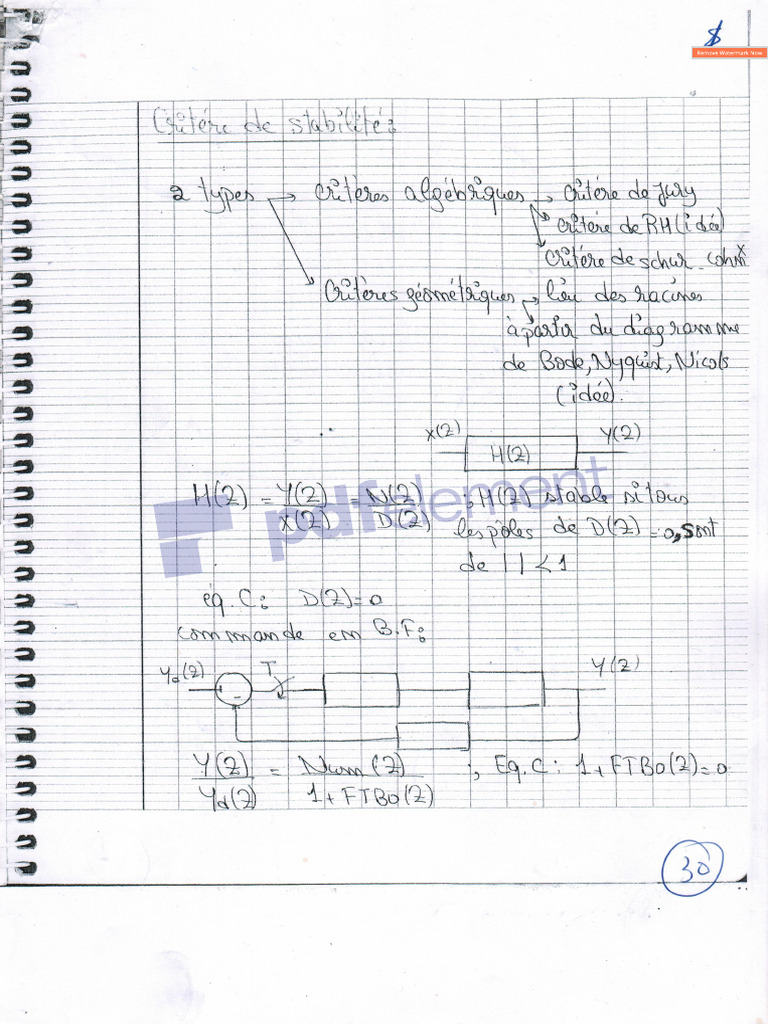 $
Remove Watermark Now
Critére de stabilité:
2 types → critères algébriques → critére de jury
critére de RH (idée)
critére de schur-cohn
critères géométriques → lieu des racines
à partir du diagramme
de Bode, Nyquist, Nicols
(idée).
X(Z) H(Z) Y(Z)
H(Z) = Y(Z)/X(Z) = N(Z)/D(Z) ; H(Z) stable si tous
les pôles de D(Z)=0, sont
de | | < 1
éq.C: D(Z)=0
commande em B.F:
Yd(Z) + - T Y(Z)
Y(Z)/Yd(Z) = Num(Z)/1+FTBO(Z) ; Eq.C: 1+FTBO(Z)=0
30
pdfelement